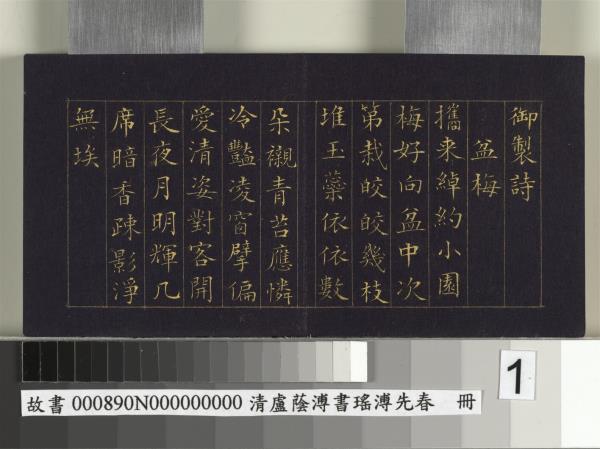 御製詩
盆梅
攜来綽約小園
梅好向盆中次
第栽皎皎幾枝
堆玉蘂依依數
朵襯青苔應憐
冷豔凌窗擘偏
愛清姿對客開
長夜月明輝几
席暗香疎影淨
無埃
1
故書 000890N000000000 清盧蔭溥書瑤溥先春 冊